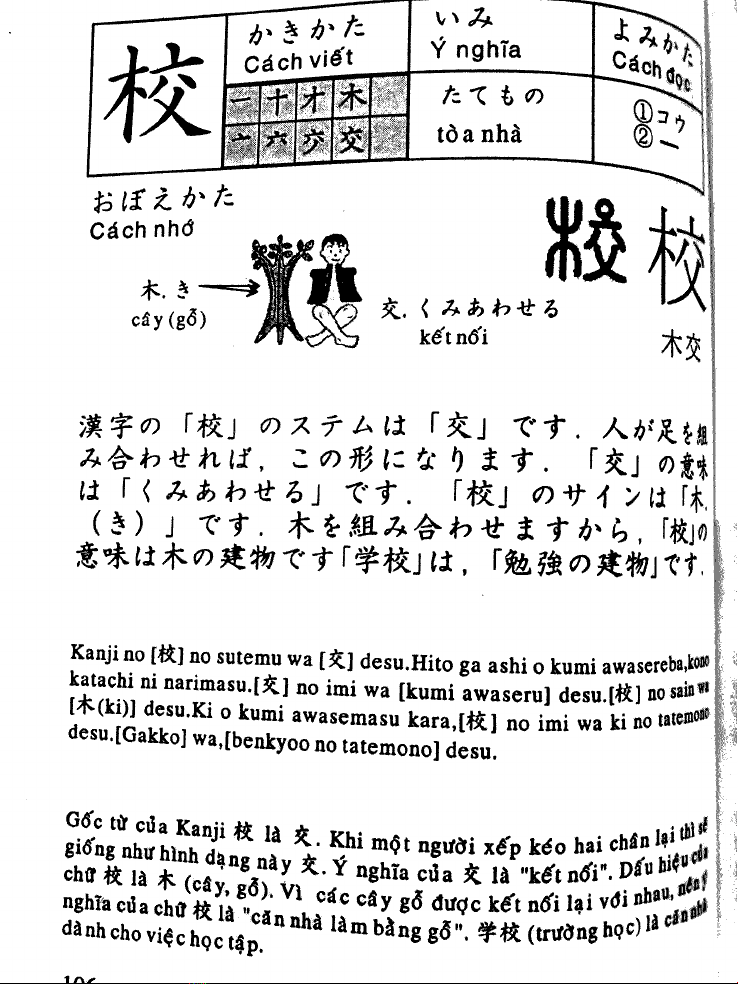 校
かきかた
Cách viết
いみ
Ý nghĩa
よみかた
Cách đọc
一 十 才 木
亠 六 交 交
たてもの
tòa nhà
①コウ
②ー
おぼえかた
Cách nhớ
木. き
cây (gỗ)
交. くみあわせる
kết nối
校 校
木交
漢字の「校」のステムは「交」です. 人が足を組
み合わせれば, この形になります. 「交」の意味
は「くみあわせる」です. 「校」のサインは「木.
(き)」です. 木を組み合わせますから,「校」の
意味は木の建物です「学校」は,「勉強の建物」です.
Kanji no [校] no sutemu wa [交] desu.Hito ga ashi o kumi awasereba,kono
katachi ni narimasu.[交] no imi wa [kumi awaseru] desu.[校] no sain wa
[木(ki)] desu.Ki o kumi awasemasu kara,[校] no imi wa ki no tatemono
desu.[Gakko] wa,[benkyoo no tatemono] desu.
Gốc từ của Kanji 校 là 交. Khi một người xếp kéo hai chân lại thì sẽ
giống như hình dạng này 交. Ý nghĩa của 交 là "kết nối". Dấu hiệu của
chữ 校 là 木 (cây, gỗ). Vì các cây gỗ được kết nối lại với nhau, nên ý
nghĩa của chữ 校 là "căn nhà làm bằng gỗ". 学校 (trường học) là căn nhà
dành cho việc học tập.